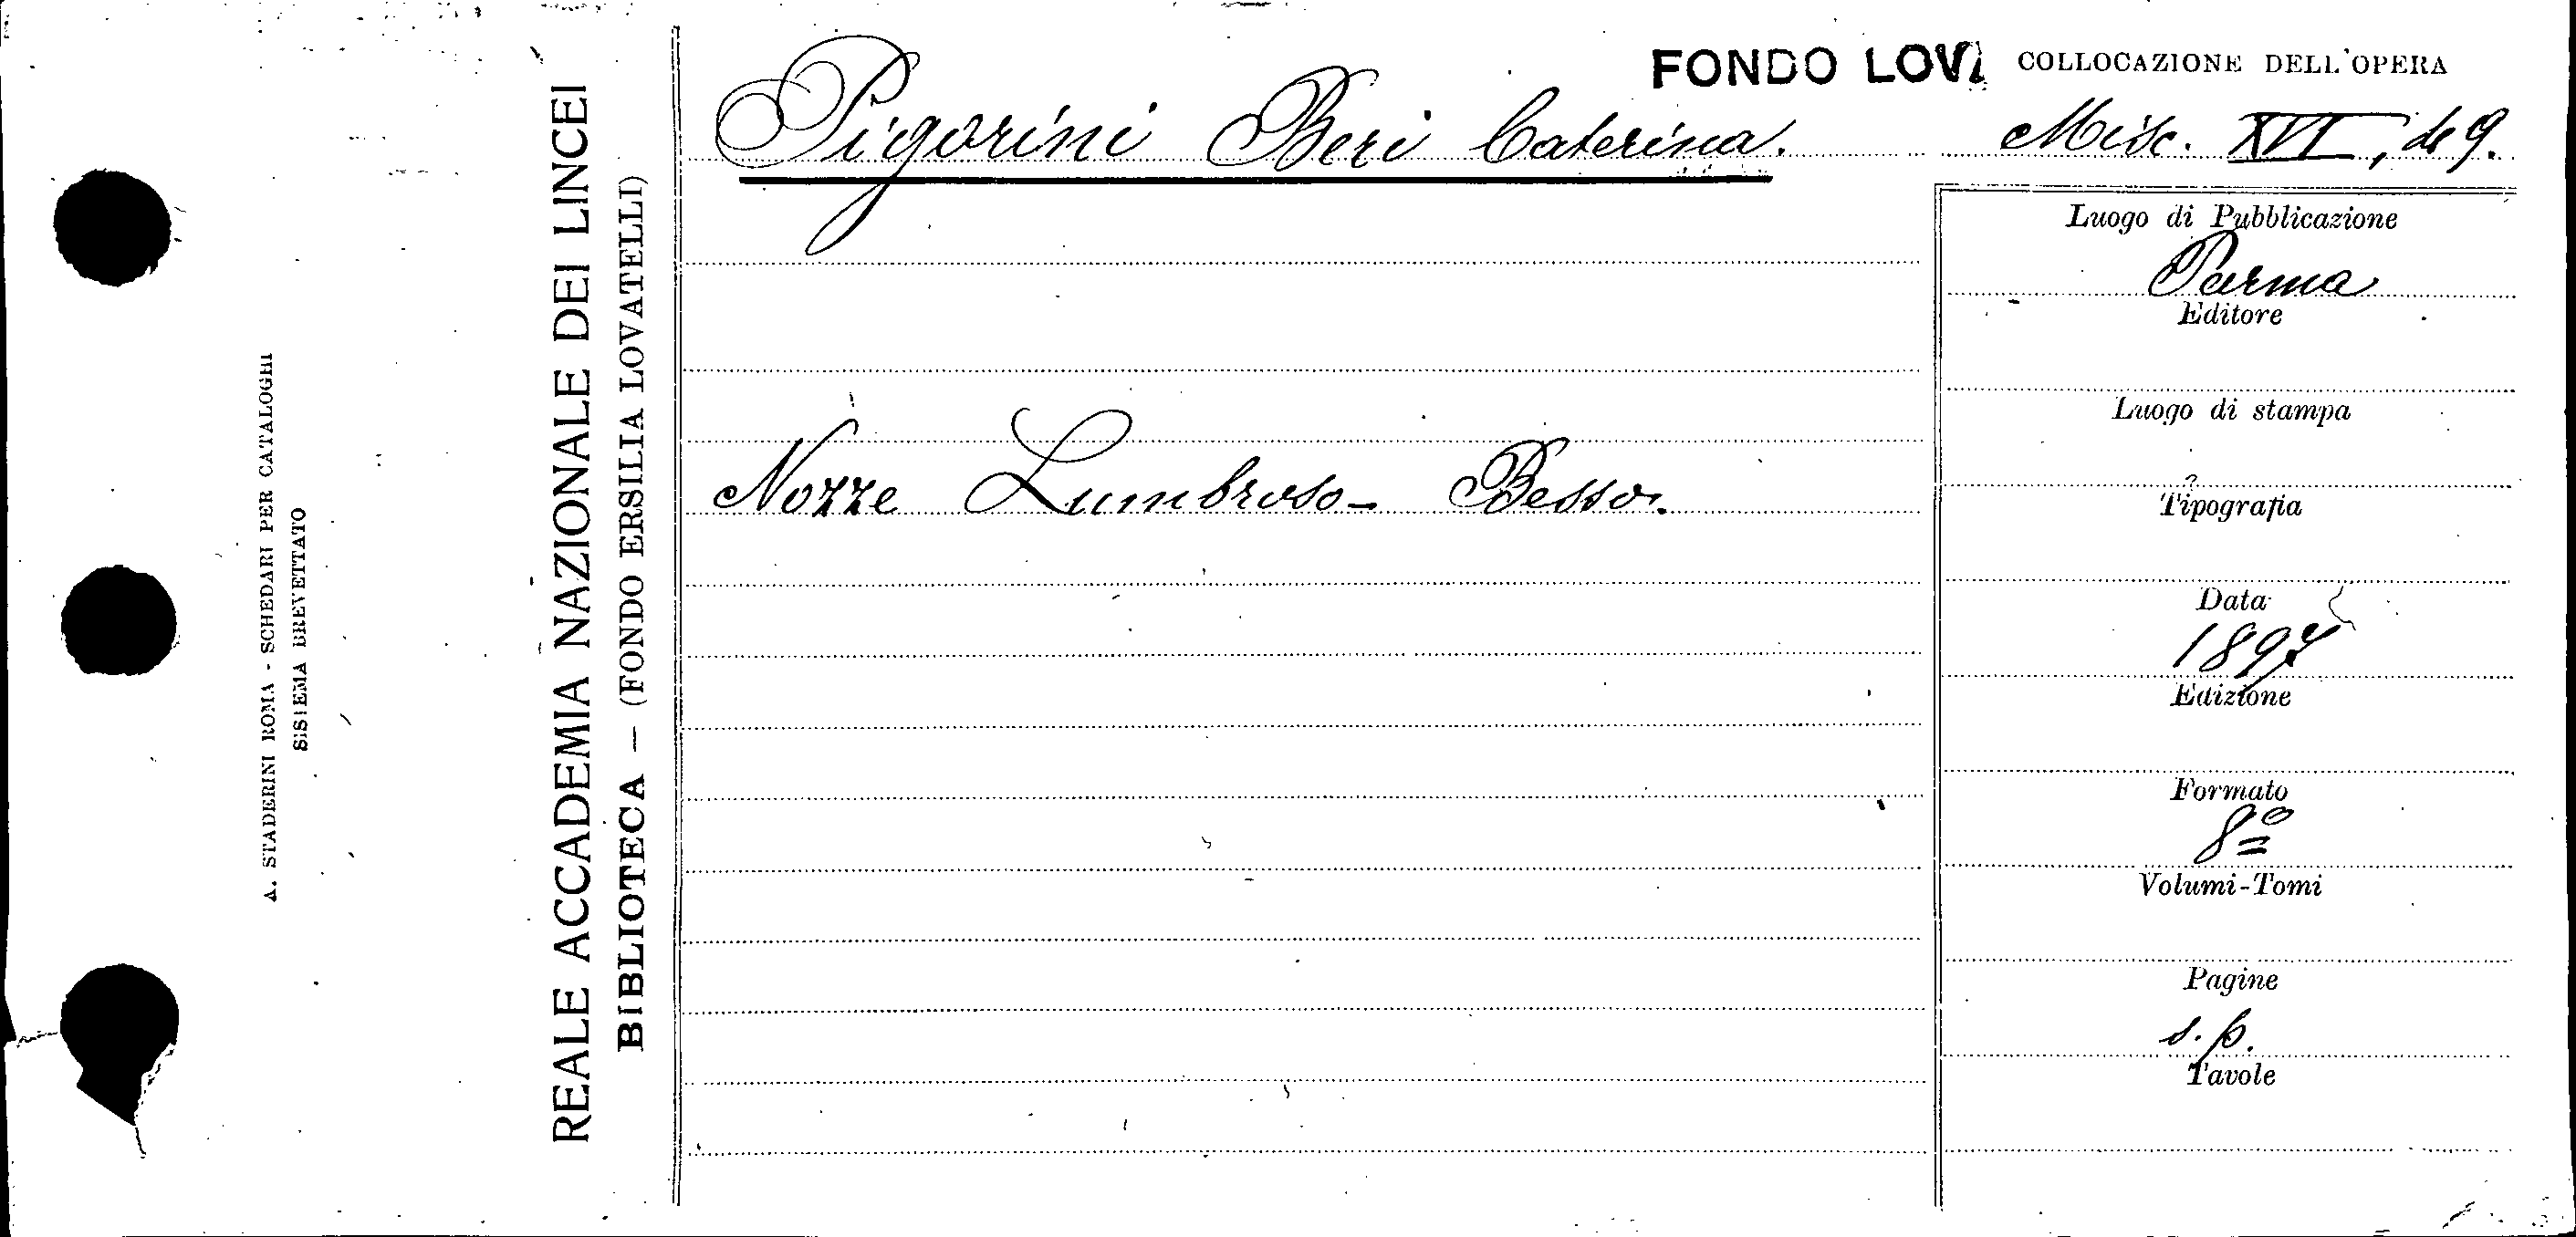 A. STADERINI ROMA - SCHEDARI PER CATALOGHI
SISTEMA BREVETTATO
REALE ACCADEMIA NAZIONALE DEI LINCEI
BIBLIOTECA — (FONDO ERSILIA LOVATELLI)
FONDO LOV
COLLOCAZIONE DELL'OPERA
Pigorini Beri Caterina.
Misc. XVI, 9.
Nozze Lumbroso - Besso.
Luogo di Pubblicazione
Parma
Editore
Luogo di stampa
Tipografia
Data
1897
Edizione
Formato
8º
Volumi-Tomi
Pagine
s. p.
Tavole